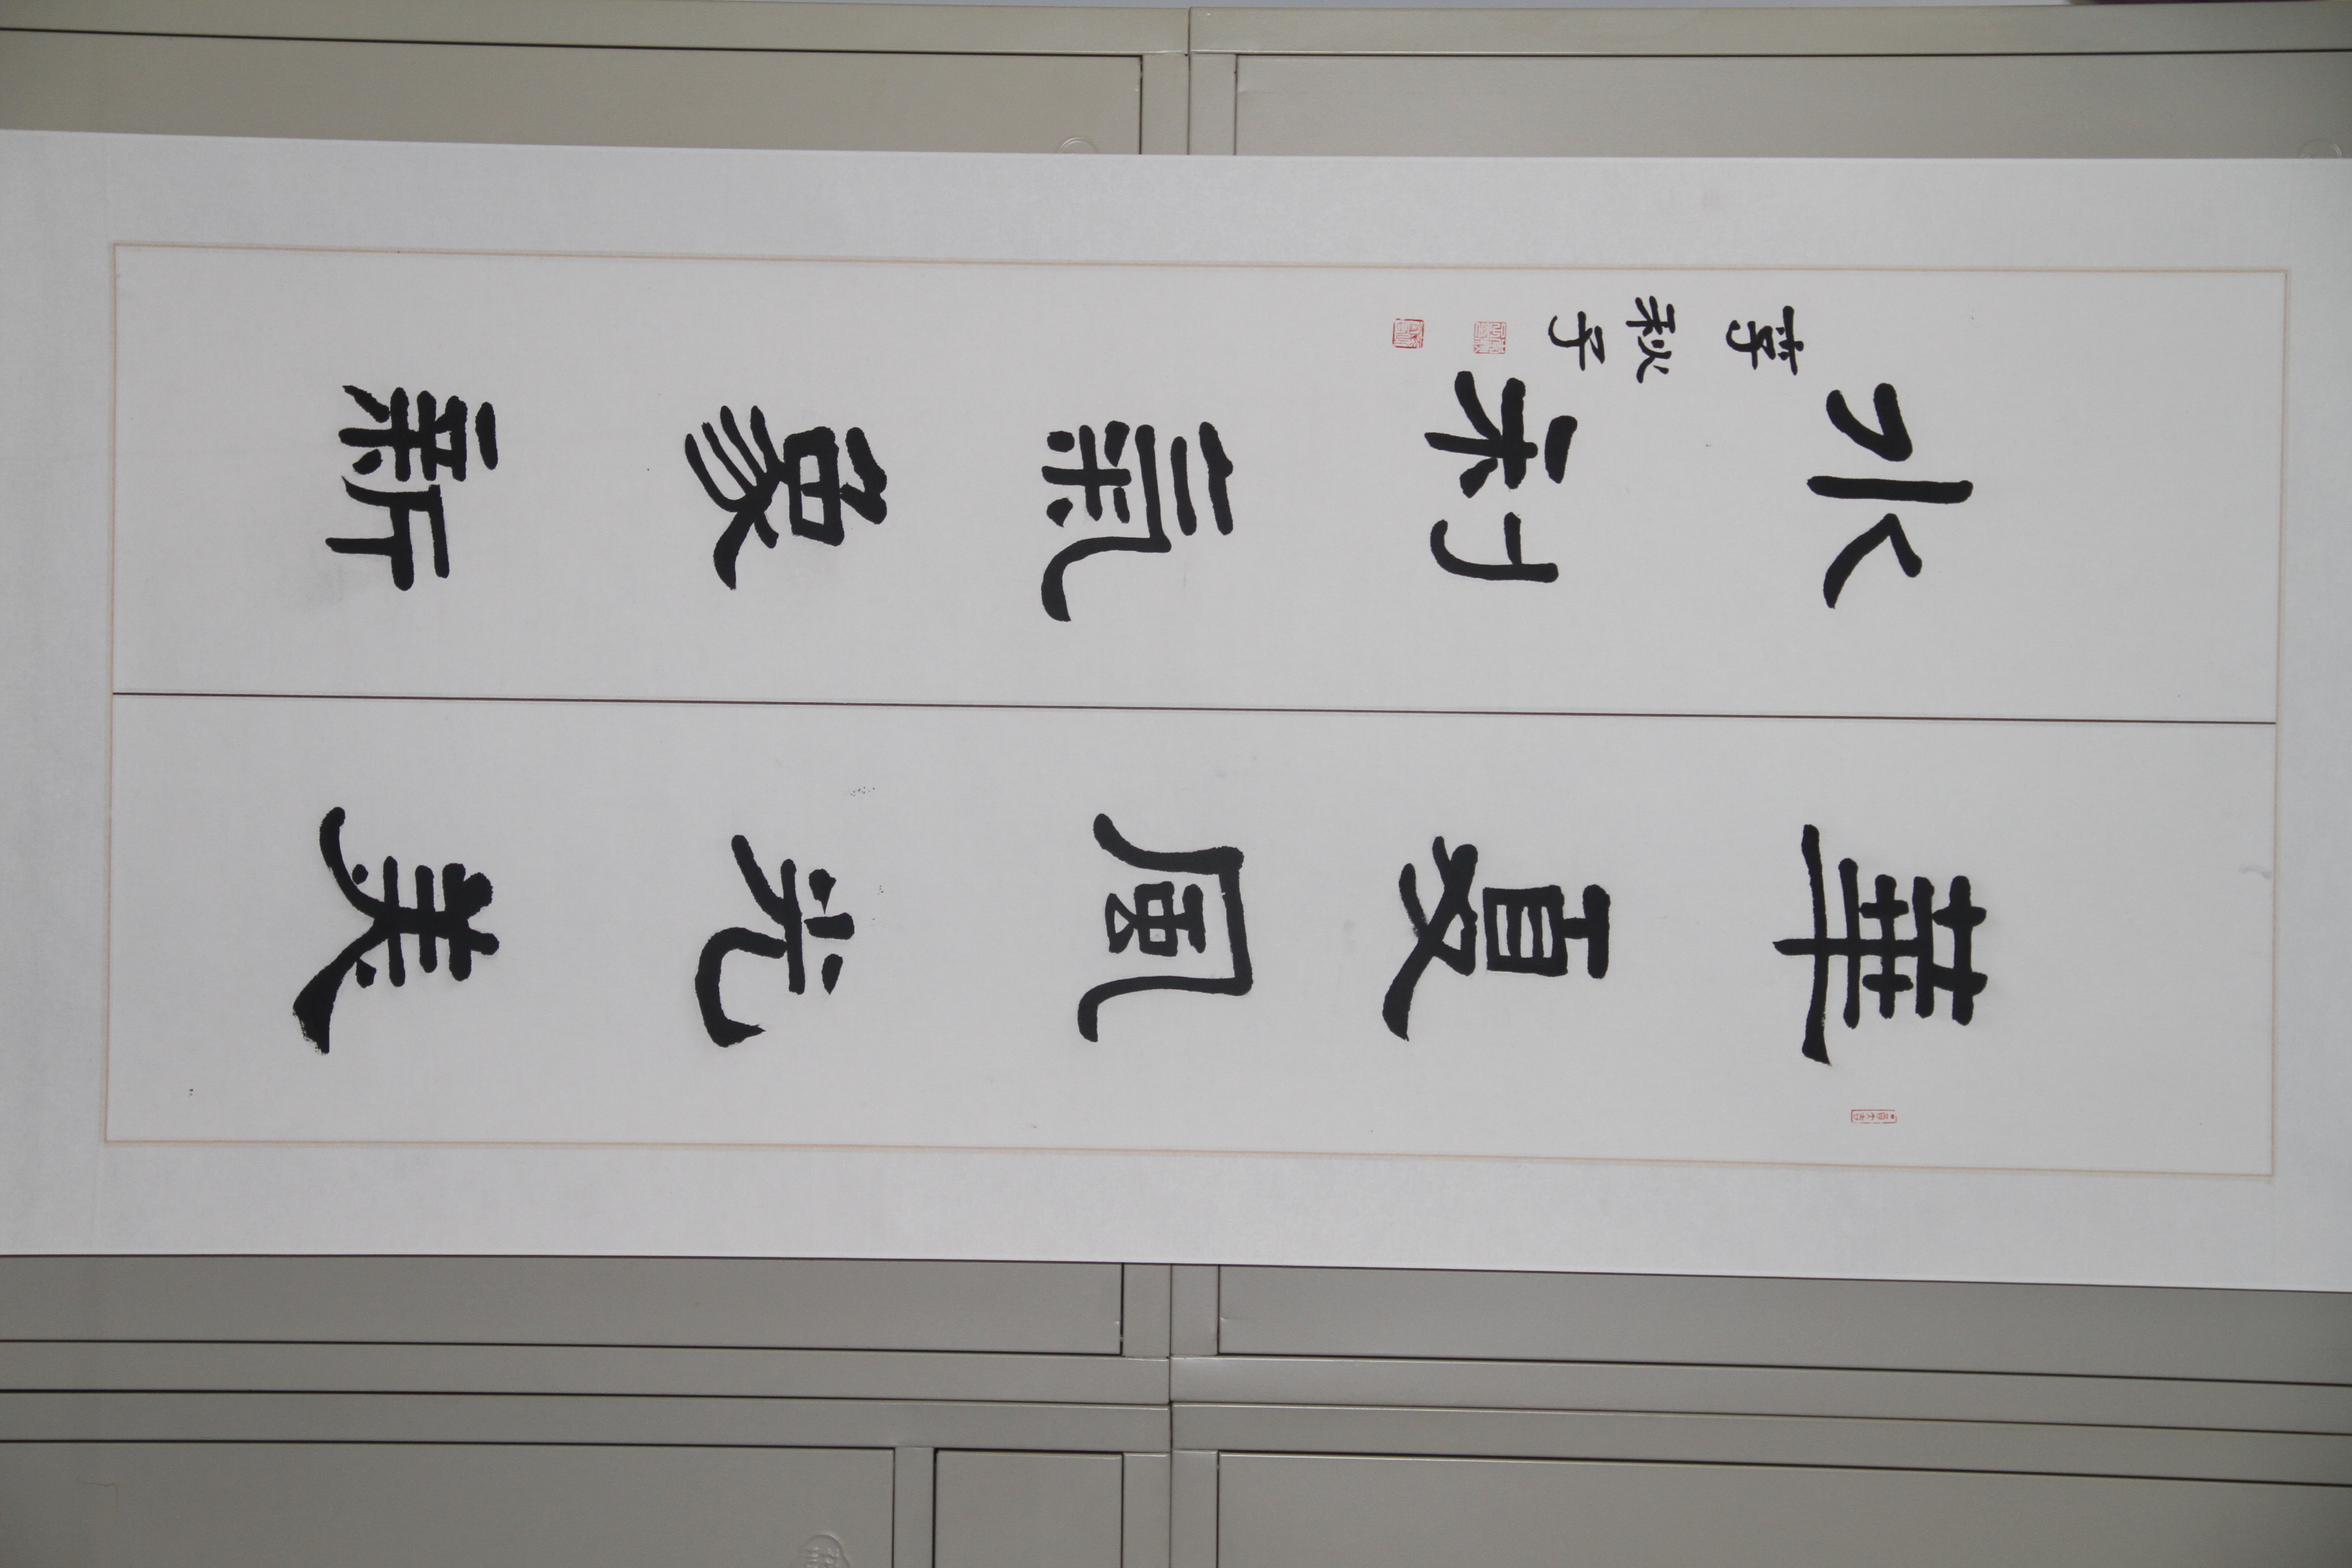 華夏風光美
水利氣象新
秋子